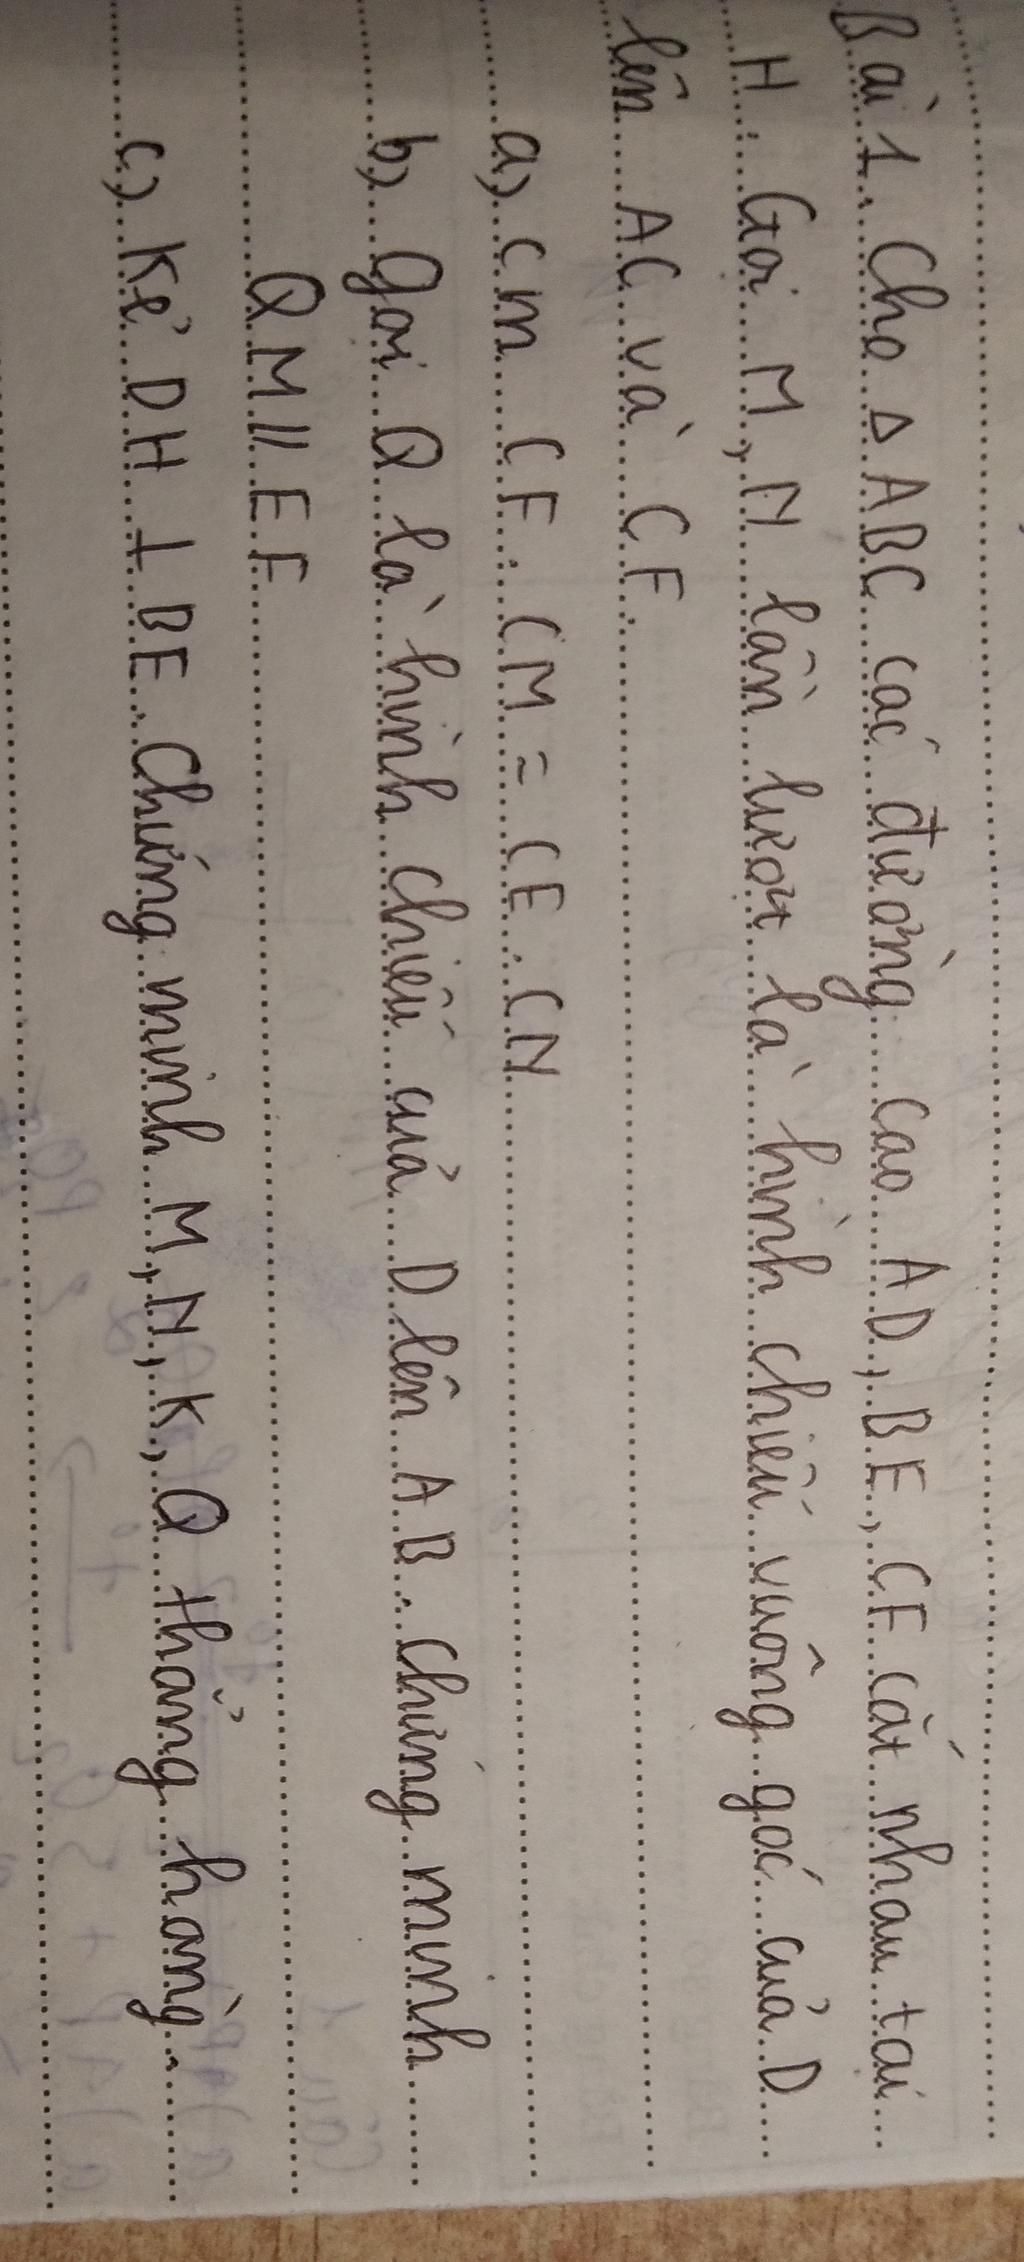 Bài 1. Cho Δ ABC các đường cao AD, BE, CF cắt nhau tại
H. Gọi M, N lần lượt là hình chiếu vuông góc của D
lên AC và CF.
a) cm CF. CM = CE. CN
b) Gọi Q là hình chiếu của D lên AB. Chứng minh
QM // EF
c) Kẻ DH ⊥ BE. Chứng minh M, N, K, Q thẳng hàng.